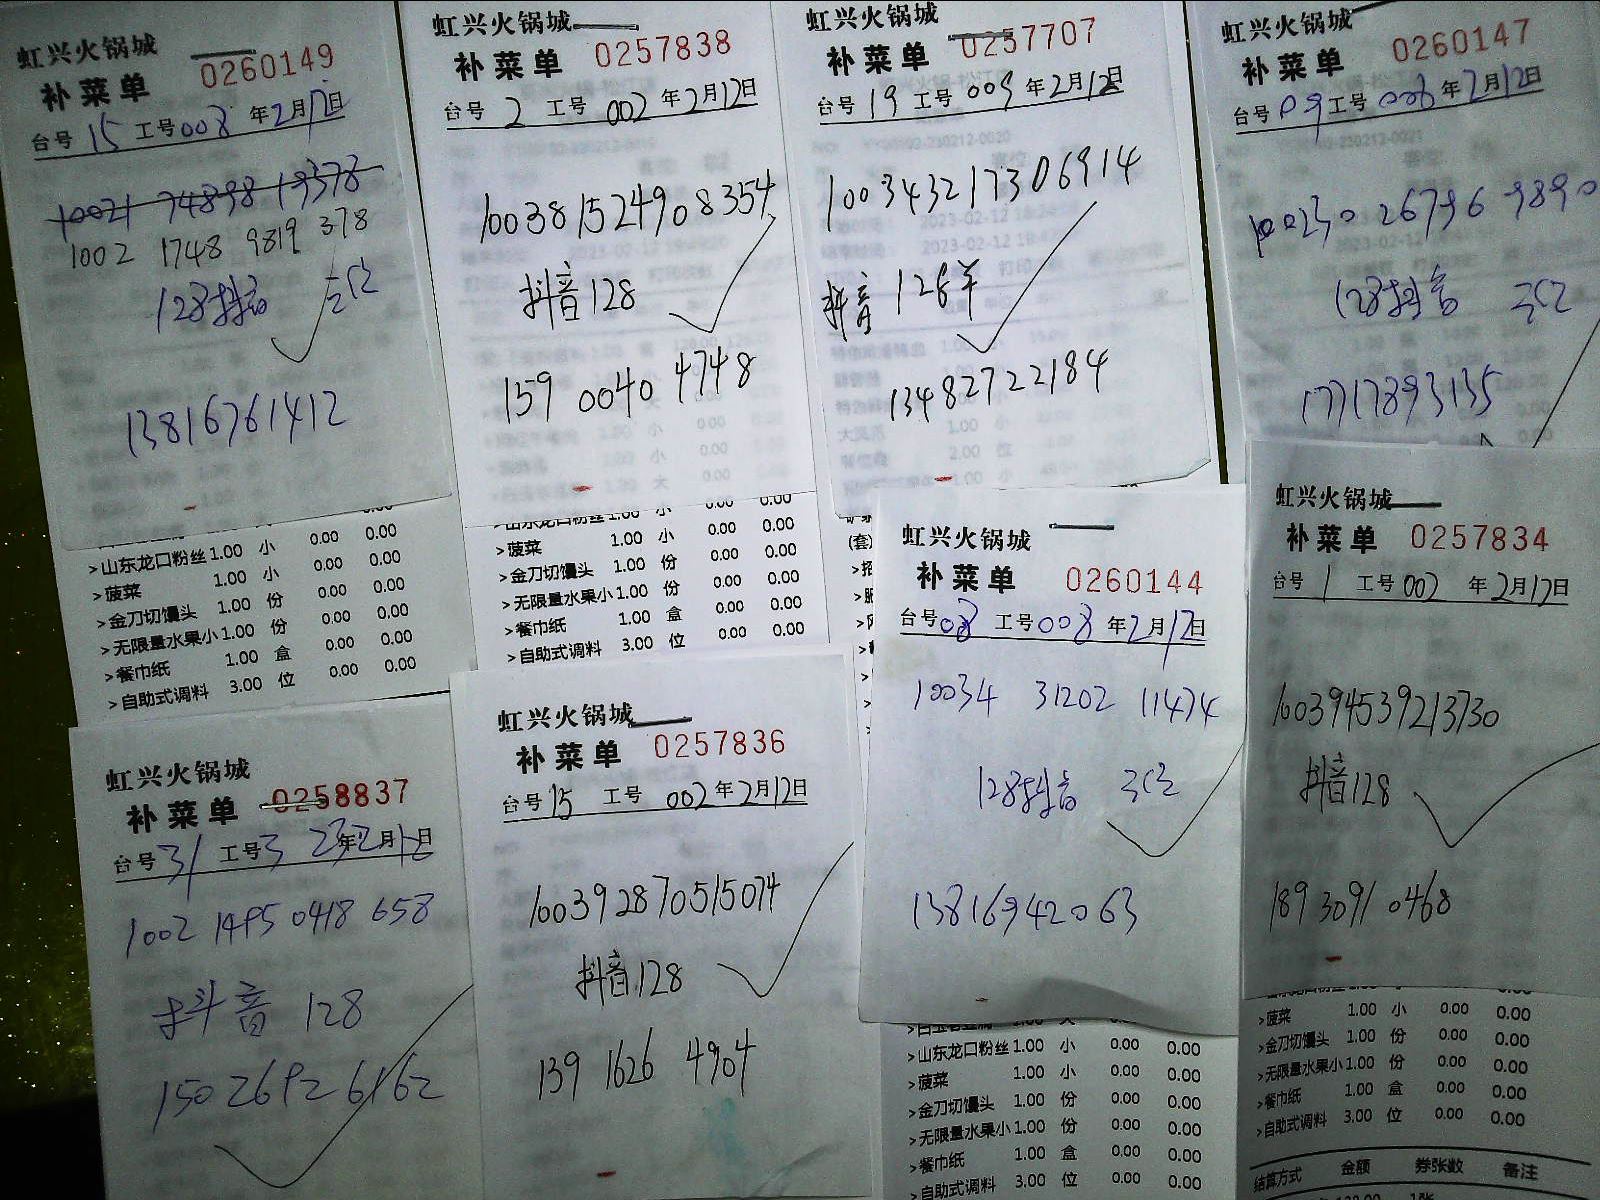 虹兴火锅城
补菜单 0260149
台号 15 工号 008 年 2月12日
10021 74898 19378
1002 1748 9819 378
128抖音
13816761412
>山东龙口粉丝 1.00 小 0.00 0.00
>菠菜 1.00 小 0.00 0.00
>金刀切馒头 1.00 份 0.00 0.00
>无限量水果小 1.00 份 0.00 0.00
>餐巾纸 1.00 盒 0.00 0.00
>自助式调料 3.00 位 0.00 0.00
虹兴火锅城
补菜单 0257838
台号 2 工号 002 年2月12日
100381524908354
抖音128
159 0040 4748
>山东龙口粉丝 1.00 小 0.00 0.00
>菠菜 1.00 小 0.00 0.00
>金刀切馒头 1.00 份 0.00 0.00
>无限量水果小 1.00 份 0.00 0.00
>餐巾纸 1.00 盒 0.00 0.00
>自助式调料 3.00 位 0.00 0.00
虹兴火锅城
补菜单 0257707
台号 19 工号 009 年2月12日
100343217306914
抖音 128
13482722184
虹兴火锅城
补菜单 0260147
台号 09 工号 008 年2月12日
10023026796 9890
128抖音
17717893135
虹兴火锅城
补菜单 0258837
台号 31 工号 3 23年2月12日
1002 1495 0418 658
抖音 128
15026926162
虹兴火锅城
补菜单 0257836
台号 15 工号 002年2月12日
100392870515074
抖音128
139 1626 4904
虹兴火锅城
补菜单 0260144
台号 08 工号 008 年2月12日
10034 31202 11474
128抖音
13816942063
>山东龙口粉丝 1.00 小 0.00 0.00
>菠菜 1.00 小 0.00 0.00
>金刀切馒头 1.00 份 0.00 0.00
>无限量水果小 1.00 份 0.00 0.00
>餐巾纸 1.00 盒 0.00 0.00
>自助式调料 3.00 位 0.00 0.00
虹兴火锅城
补菜单 0257834
台号 1 工号 002 年2月12日
100394539213730
抖音128
189 3091 0468
>菠菜 1.00 小 0.00 0.00
>金刀切馒头 1.00 份 0.00 0.00
>无限量水果小 1.00 份 0.00 0.00
>餐巾纸 1.00 盒 0.00 0.00
>自助式调料 3.00 位 0.00 0.00
结算方式 金额 券张数 备注